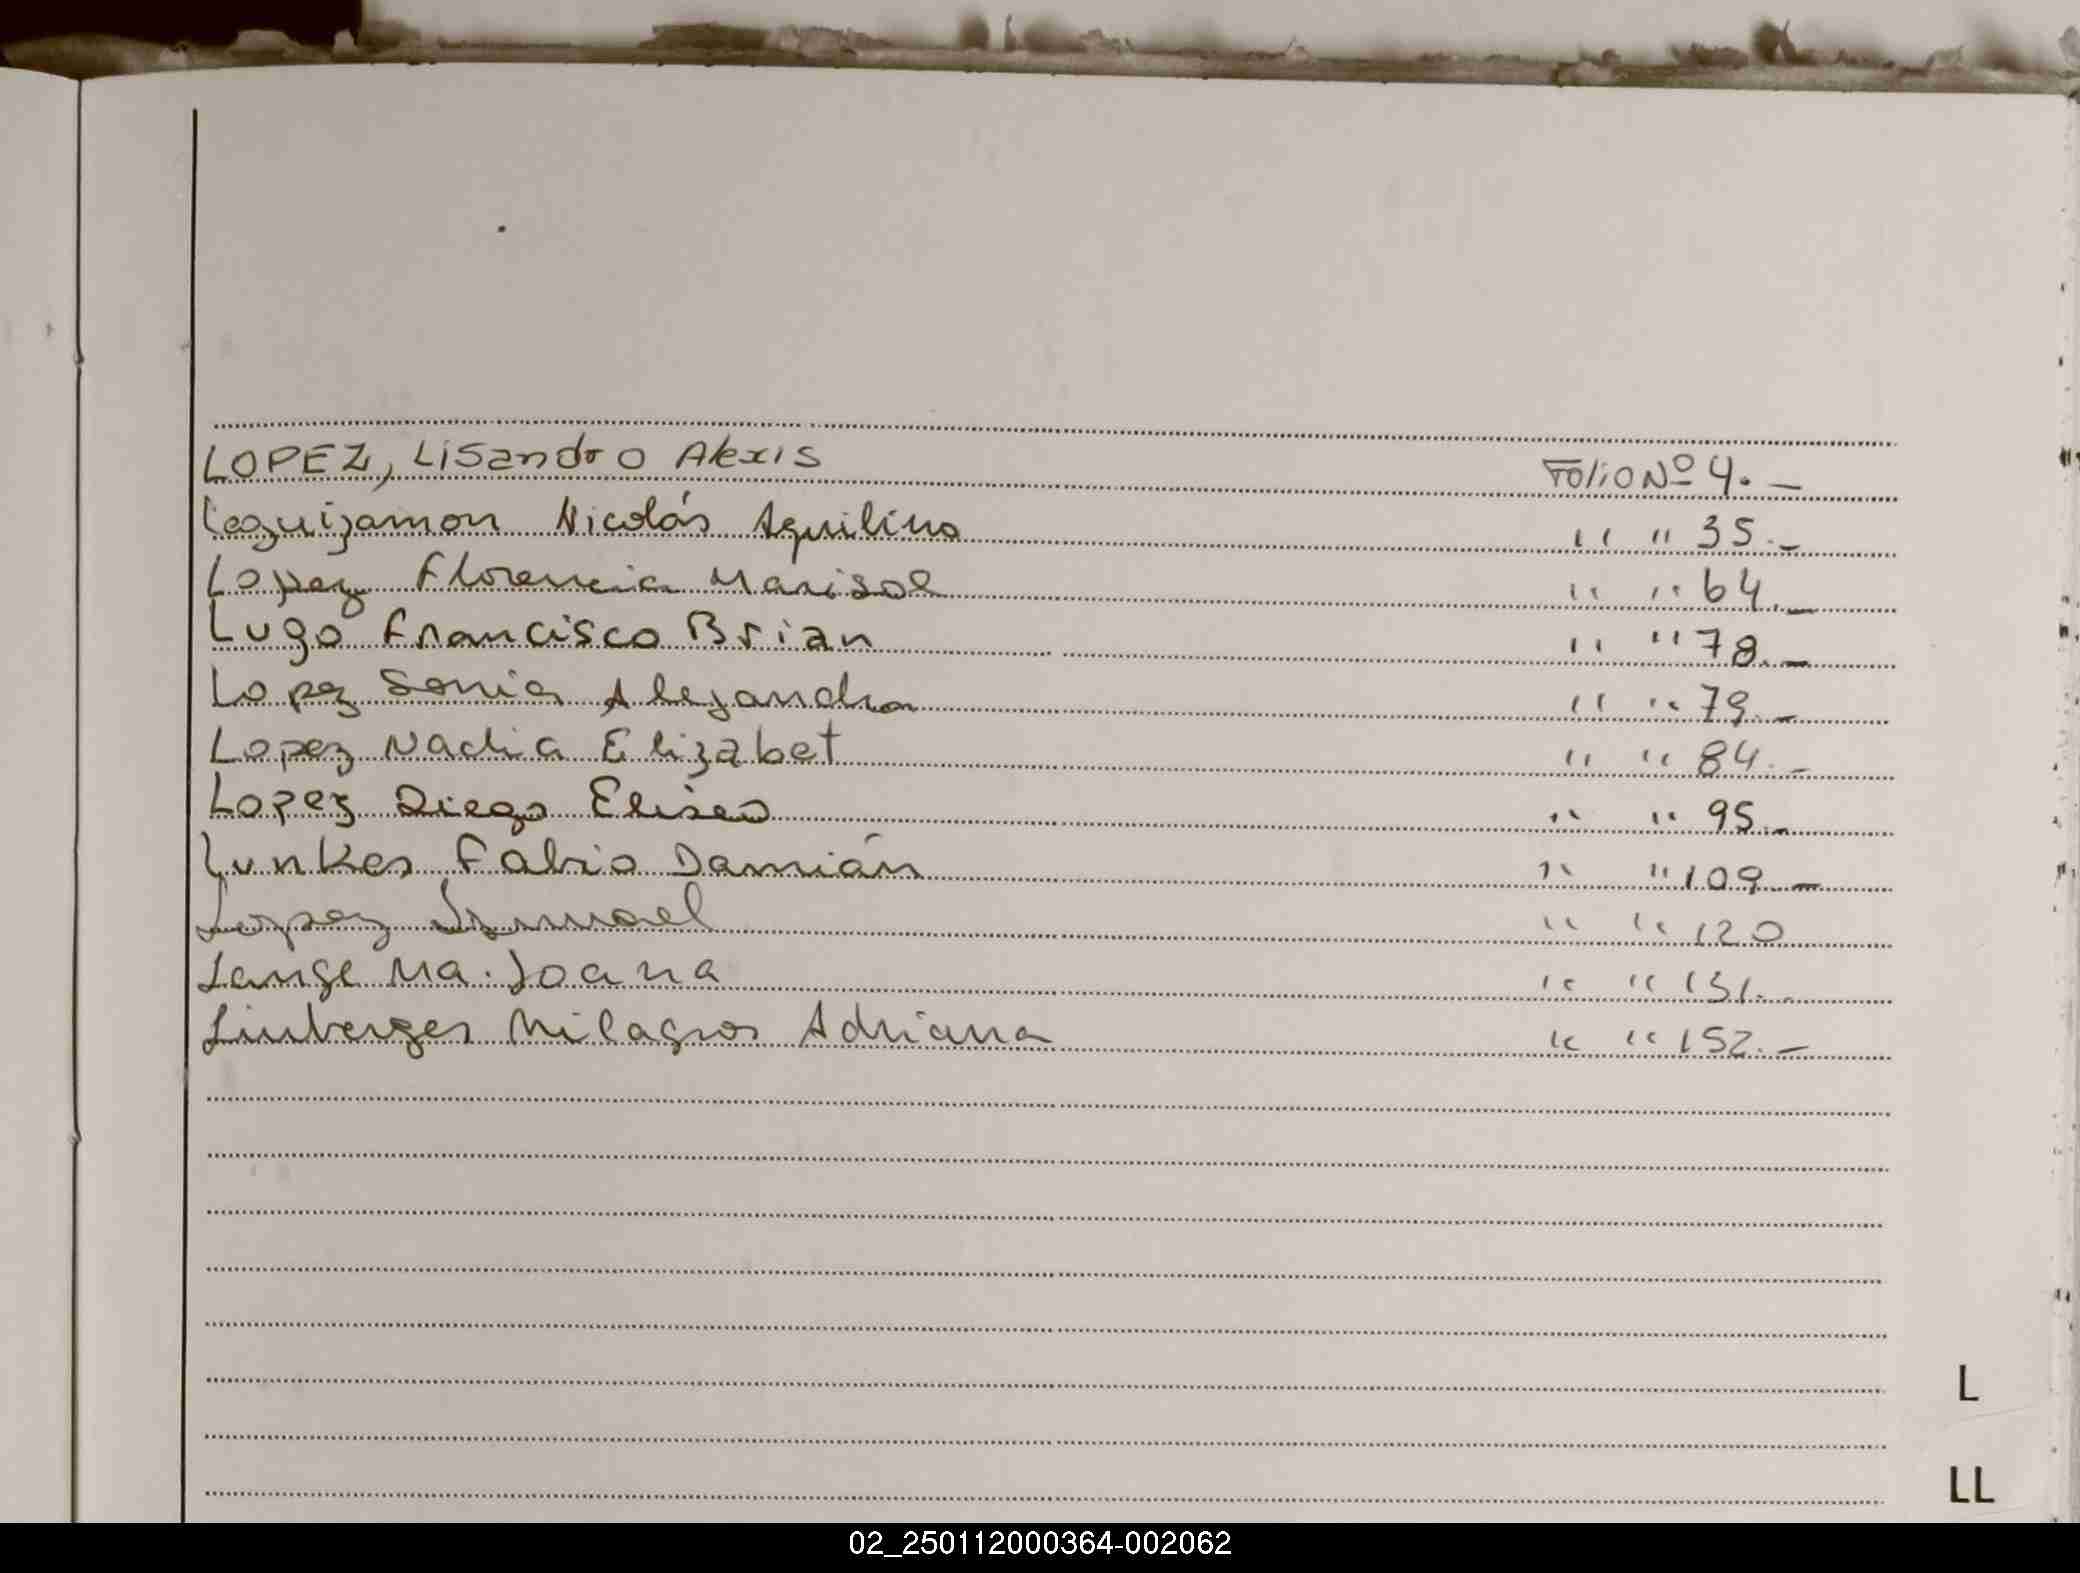 LOPEZ, Lisandro Alexis Folio Nº 4.-
Leguizamon Nicolás Aquilino " " 35.-
Lopez Florencia Marisol " " 64.-
Lugo Francisco Brian " " 78.-
Lopez Sonia Alejandra " " 79.-
Lopez Nadia Elizabet " " 84.-
Lopez Diego Eliseo " " 95.-
Lunkes Fabio Damián " " 109.-
Lopez Ismael " " 120
Lange Ma. Joana " " 131.-
Linberger Milagros Adriana " " 152.-
L
LL
02_250112000364-002062